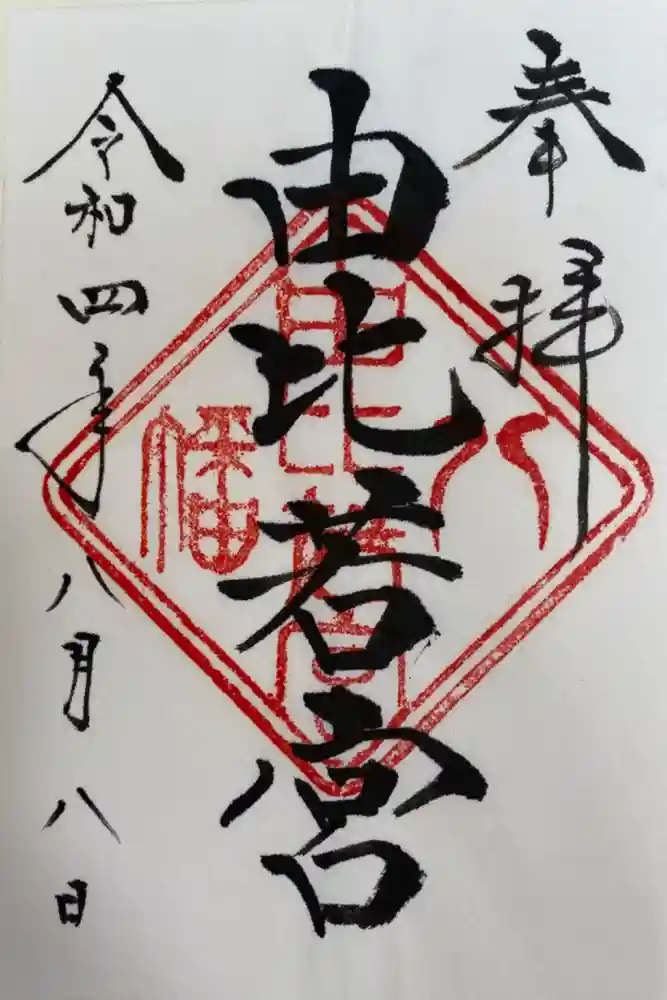 奉拝
由比若宮
八幡
令和四年八月八日